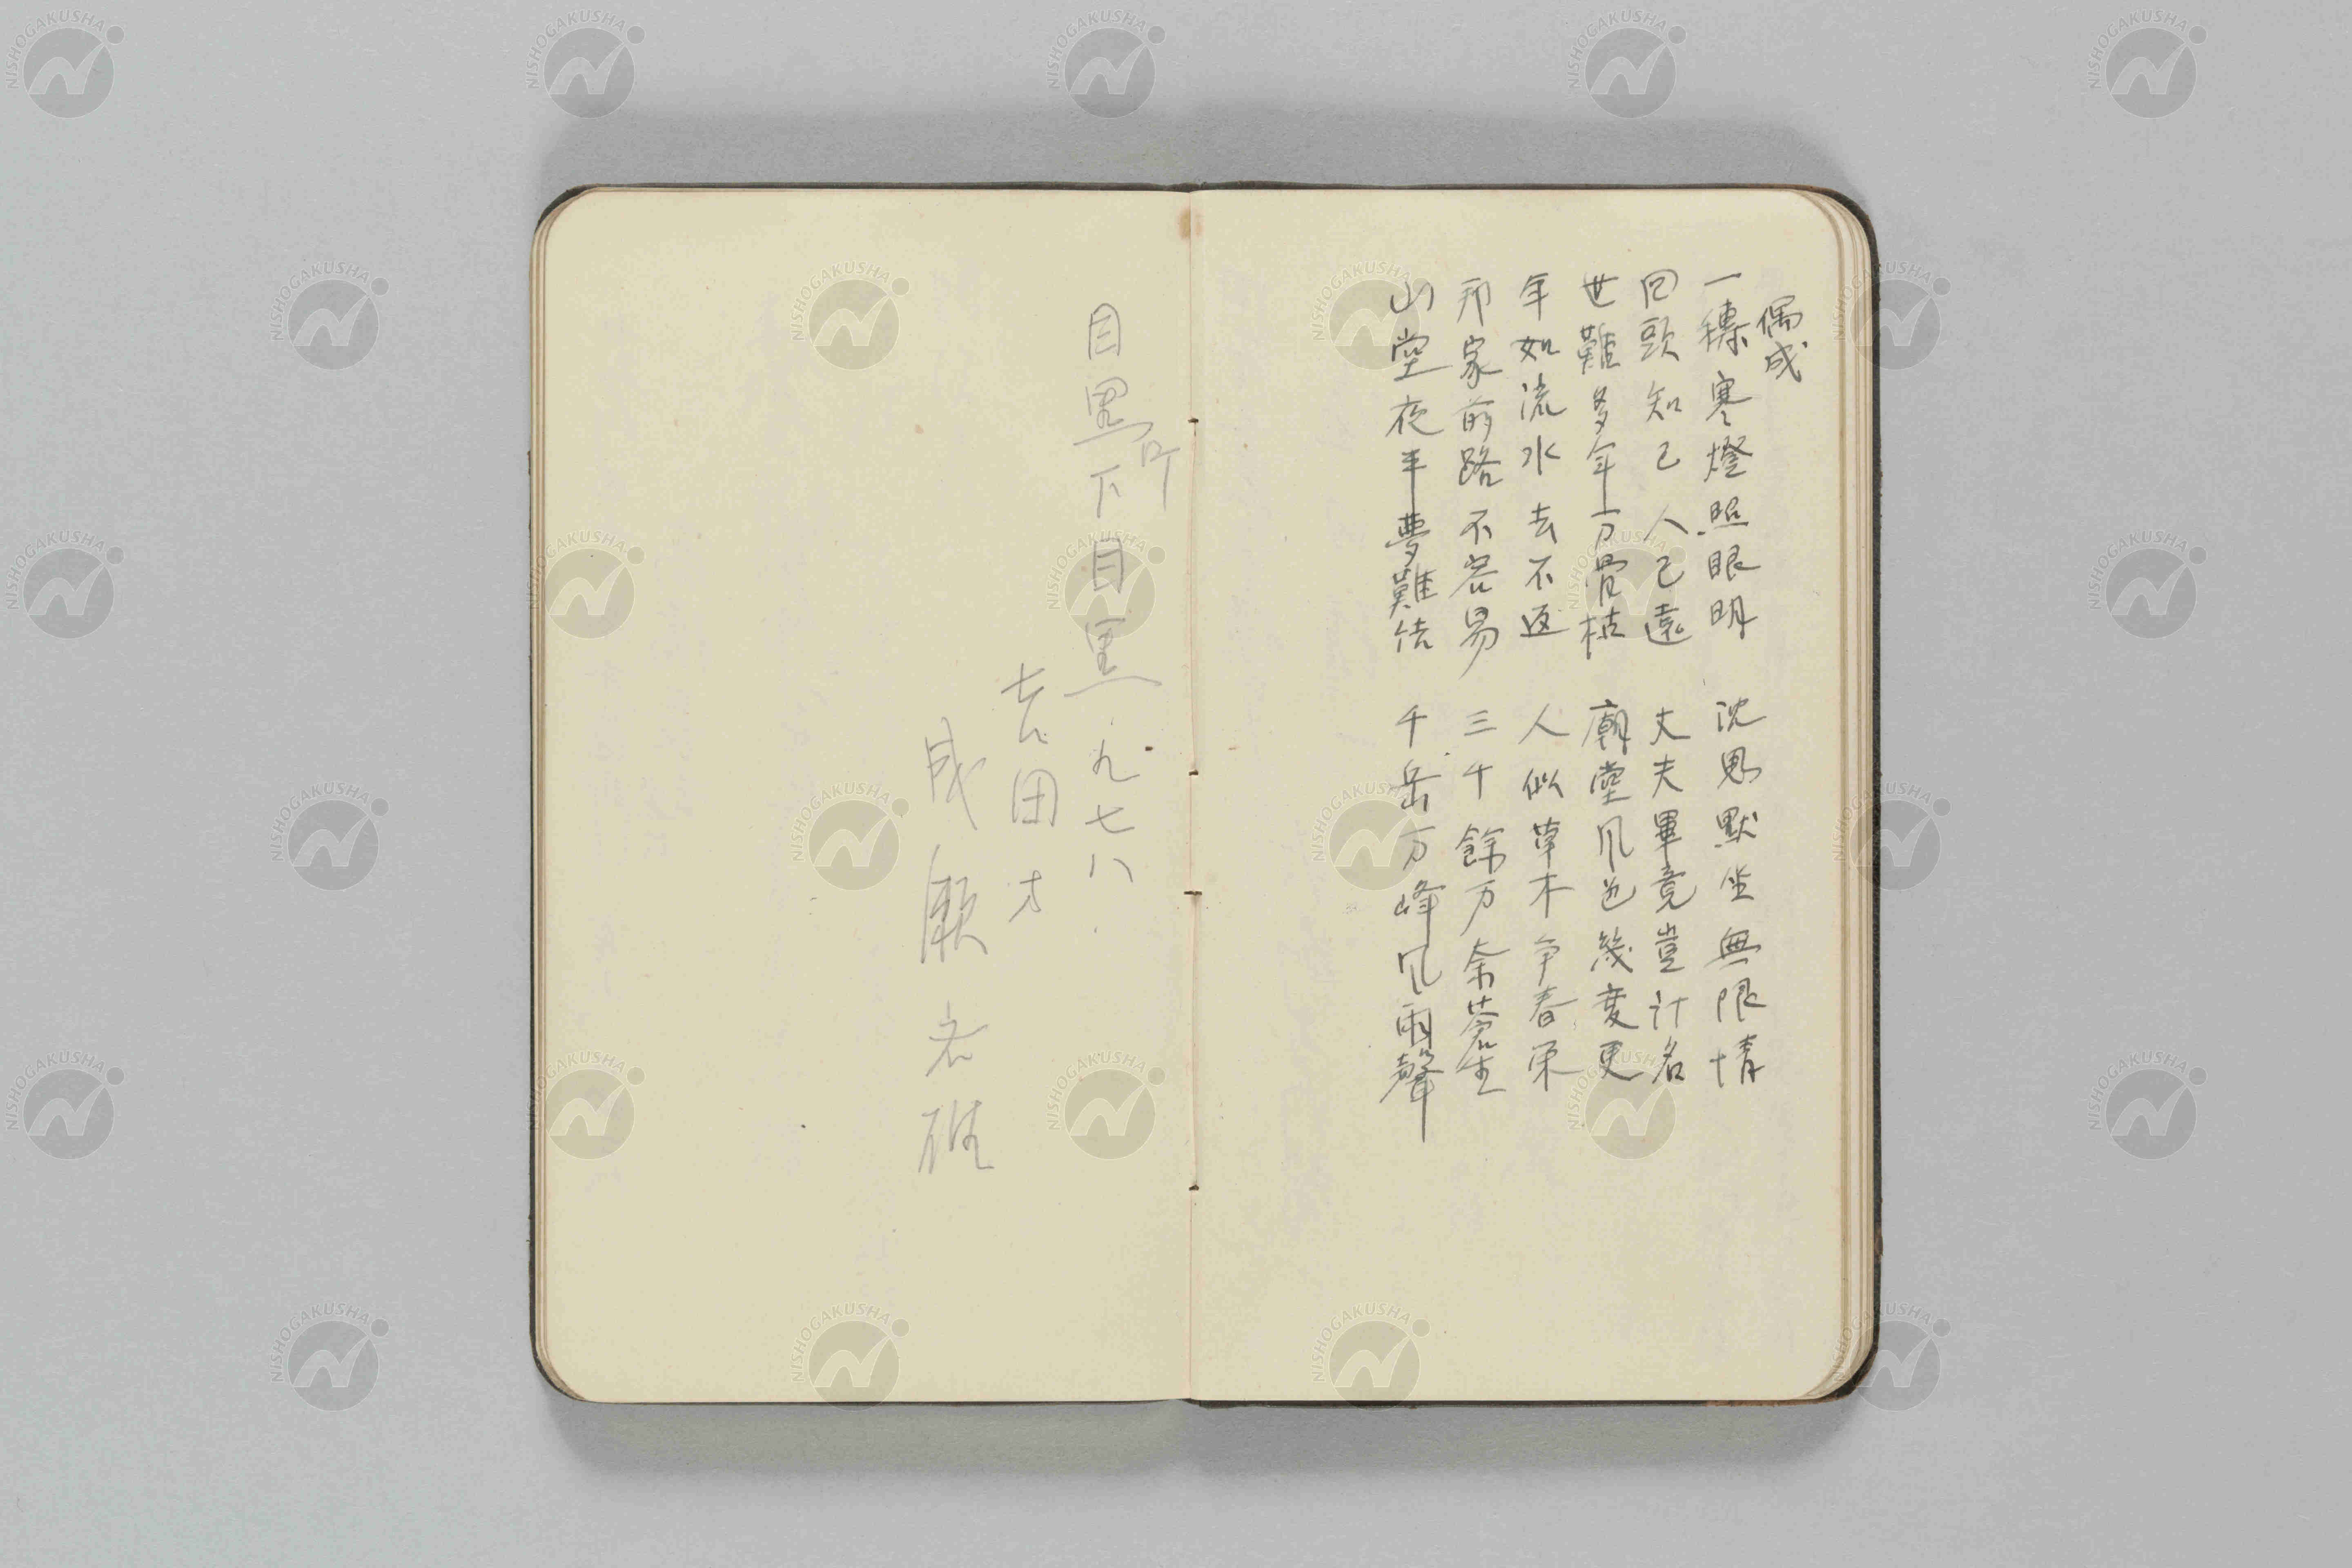 偶成
一穗寒燈照眼明 沈思默坐無限情
回頭知己人已遠 丈夫畢竟豈计名
世難多年万骨枯 廟堂风色幾度更
年如流水去不返 人似草木争春栄
邦家前路不容易 三千餘万奈蒼生
山堂夜半夢難结 千岳万峰风雨聲
目黒町
下目黒九七八
吉田方
成瀬
NISHOGAKUSHA